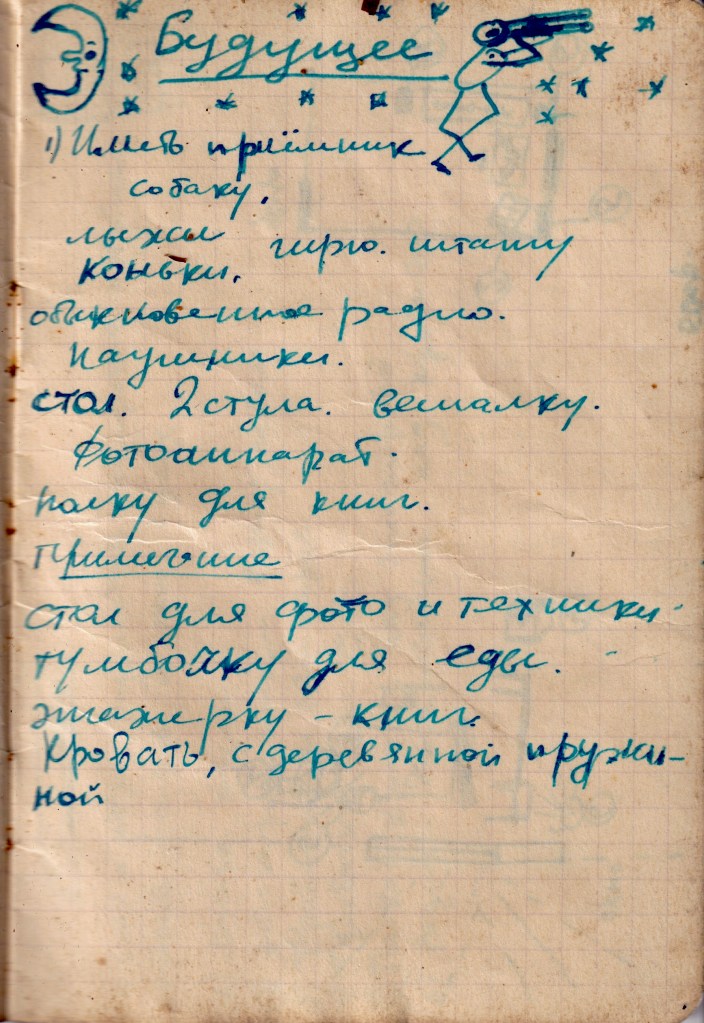 Будущее
1) Иметь приёмник
собаку,
лыжи гирю. штангу
коньки.
обыкновенное радио.
наушники.
стол. 2 стула. вешалку.
фотоаппарат.
полку для книг.
Примечание
стол для фото и техники.
тумбочку для еды.
этажерку - книг.
Кровать, с деревянной пружи-
ной